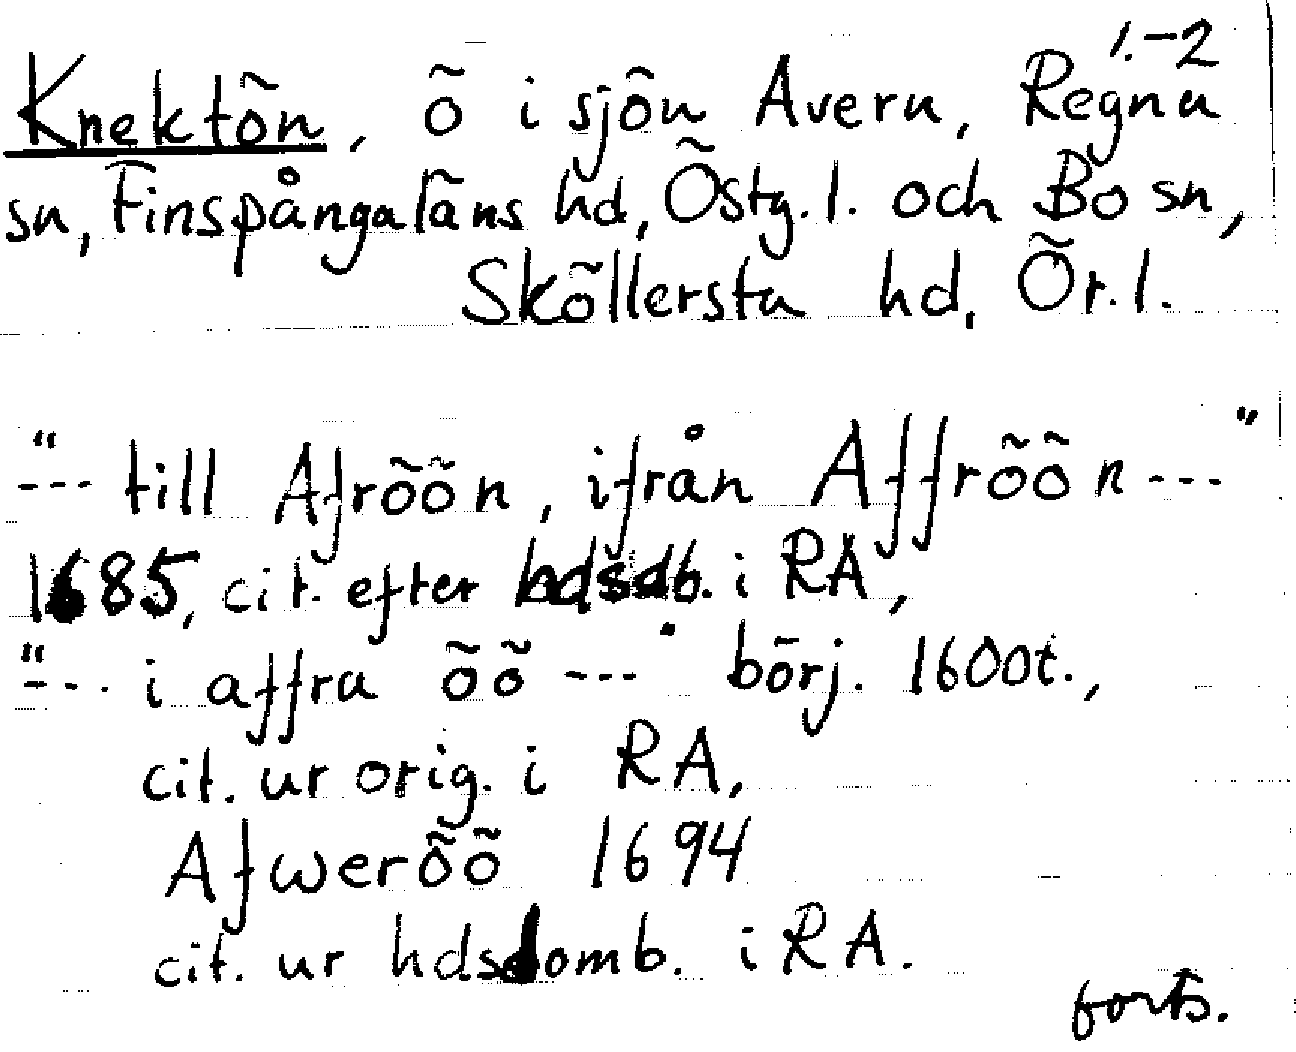 1.-2
Knektön, ö i sjön Avern, Regna
sn, Finspångaläns hd, Östg.l. och Bo sn,
Sköllersta hd, Ör.l.
"--- till Afröön, ifrån Afföön ---"
1685, cit. efter hdsdb. i RA,
"--- i affra öö ---" börj. 1600t.,
cit. ur orig. i RA,
Afweröö 1694
cit. ur hdsdomb. i RA.
forts.